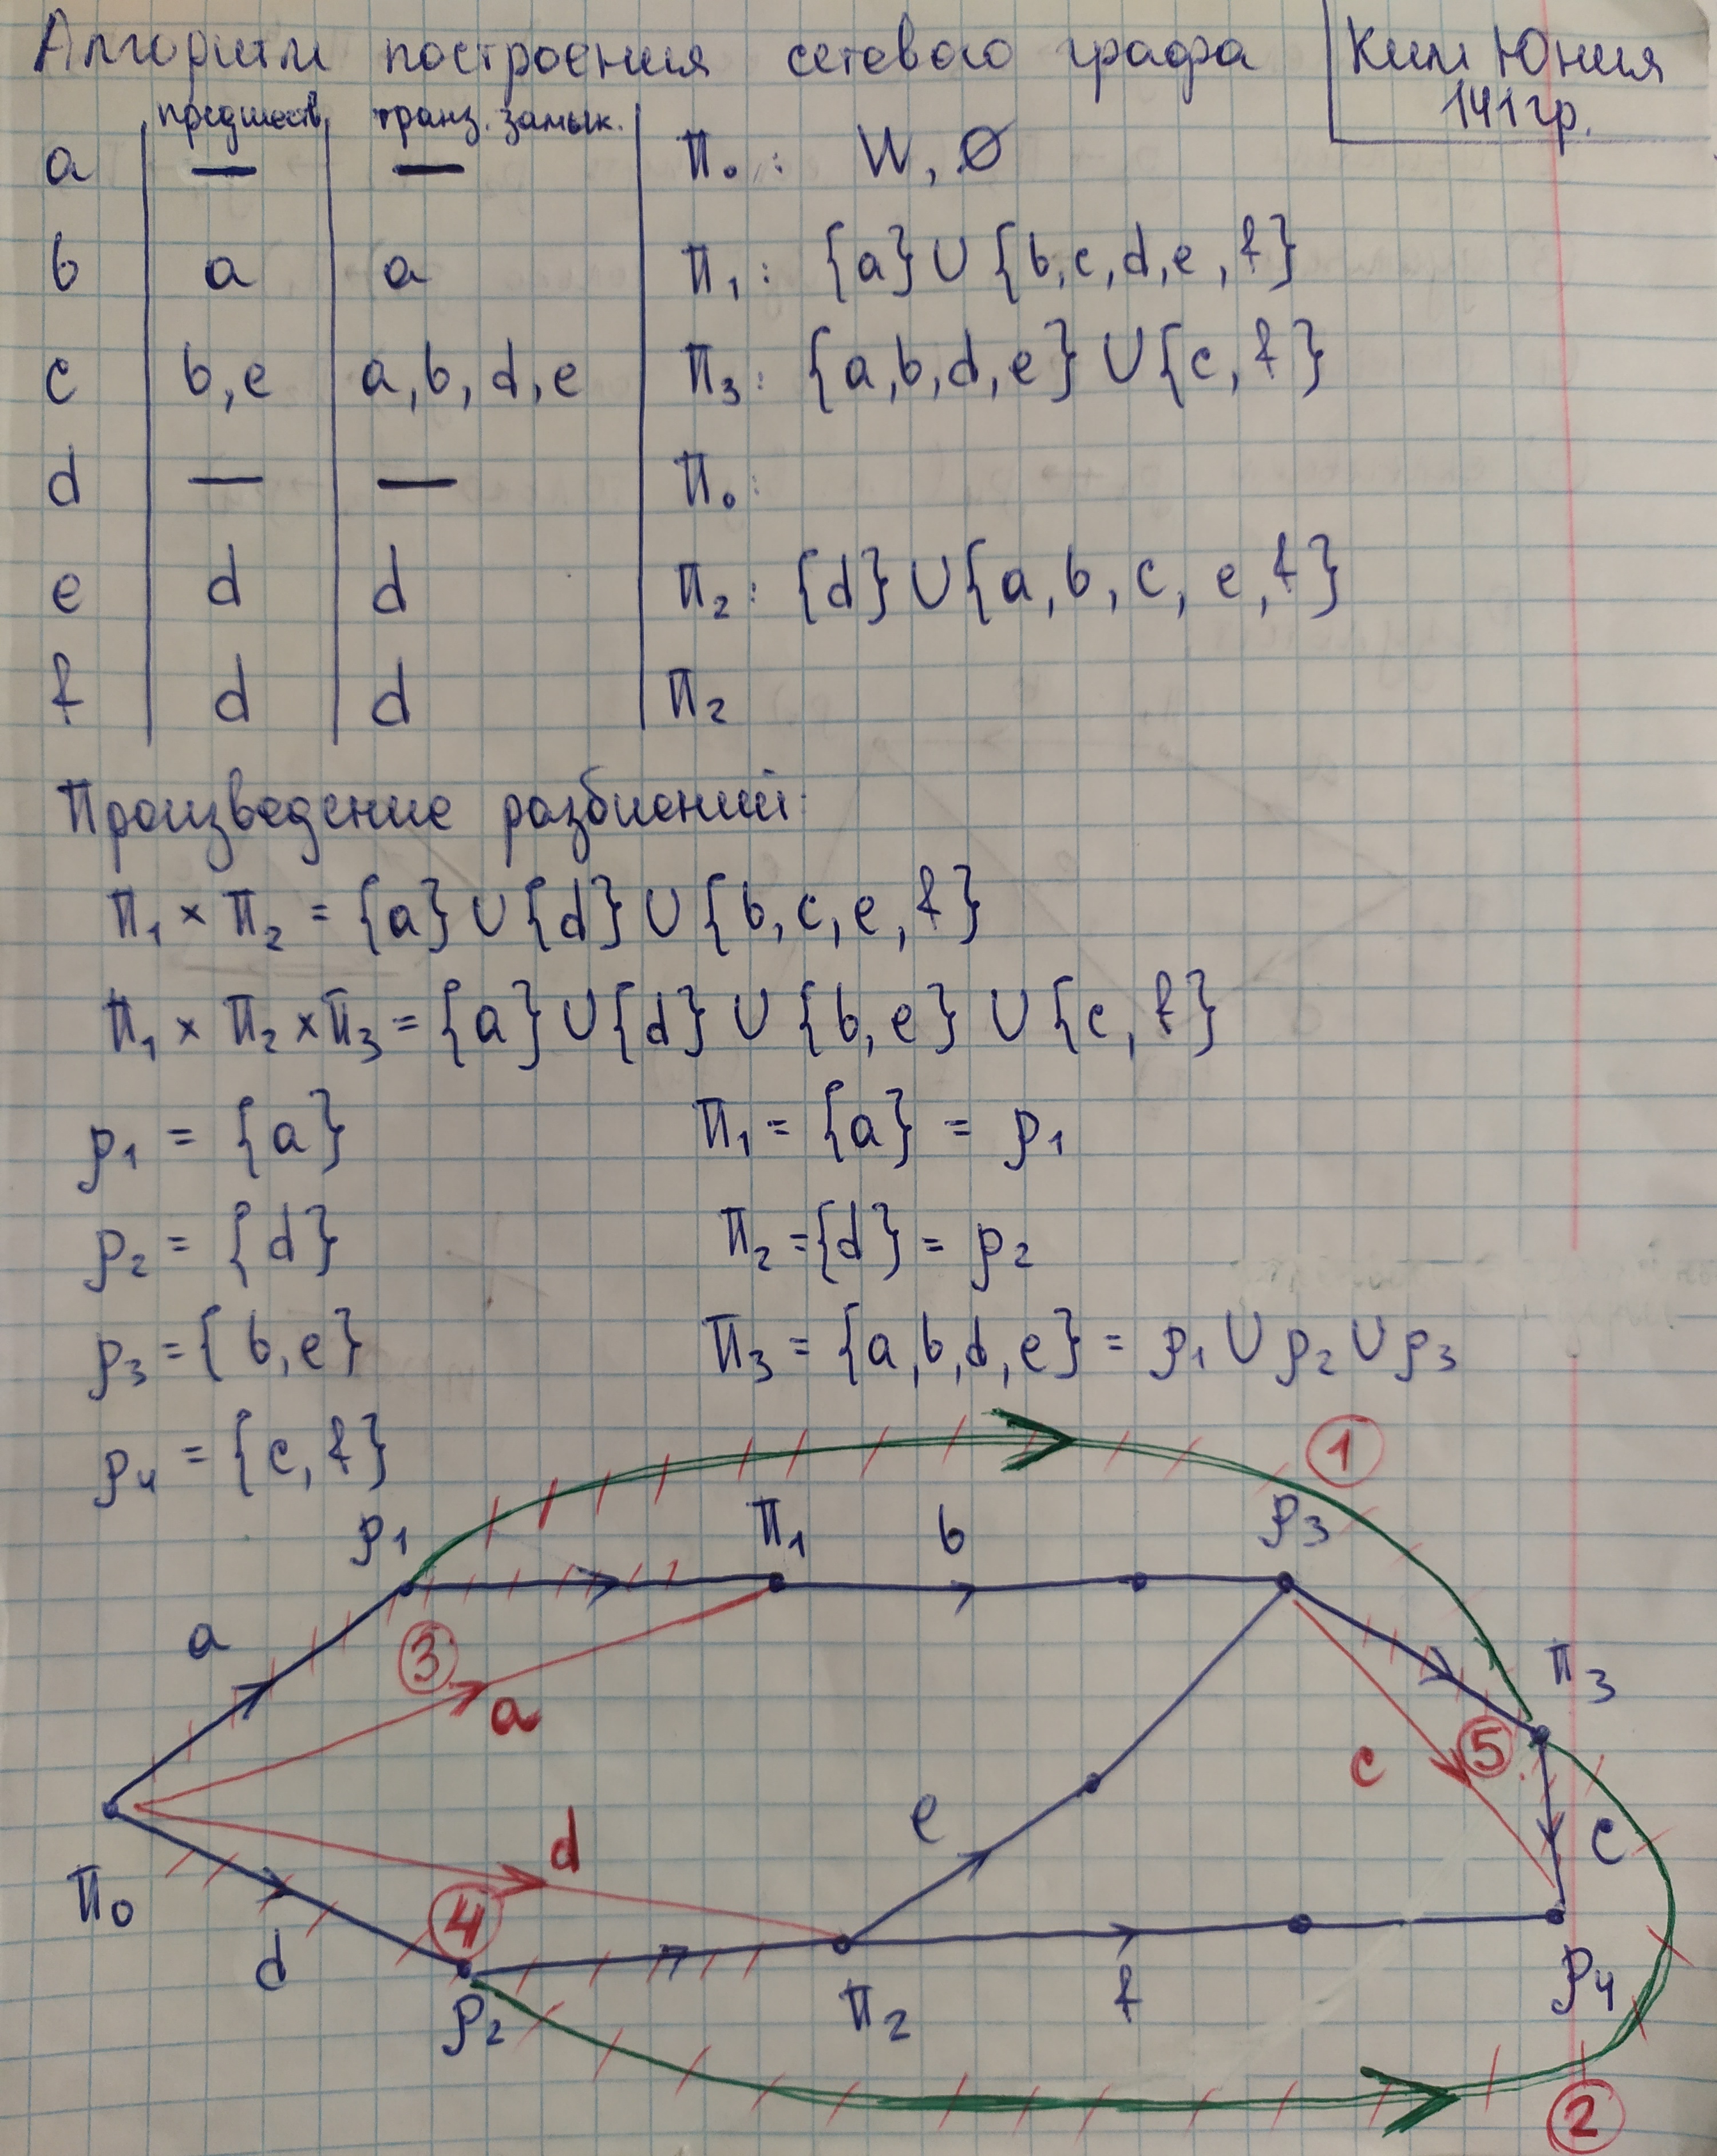 Алгоритм построения сетевого графа
Ким Юния
141гр.
предшеств. транз. замык.
a — — π₀ : W, ∅
b a a π₁ : {a} ∪ {b,c,d,e,f}
c b,e a,b,d,e π₃ : {a,b,d,e} ∪ {c,f}
d — — π₀ :
e d d π₂ : {d} ∪ {a,b,c,e,f}
f d d π₂
Произведение разбиений:
π₁ × π₂ = {a} ∪ {d} ∪ {b,c,e,f}
π₁ × π₂ × π₃ = {a} ∪ {d} ∪ {b,e} ∪ {c,f}
ρ₁ = {a} π₁ = {a} = ρ₁
ρ₂ = {d} π₂ = {d} = ρ₂
ρ₃ = {b,e} π₃ = {a,b,d,e} = ρ₁ ∪ ρ₂ ∪ ρ₃
ρ₄ = {c,f}
1
ρ₁ π₁ b ρ₃
a 3 a π₃
c 5
e c
d
π₀ 4
d ρ₂ π₂ f ρ₄
2